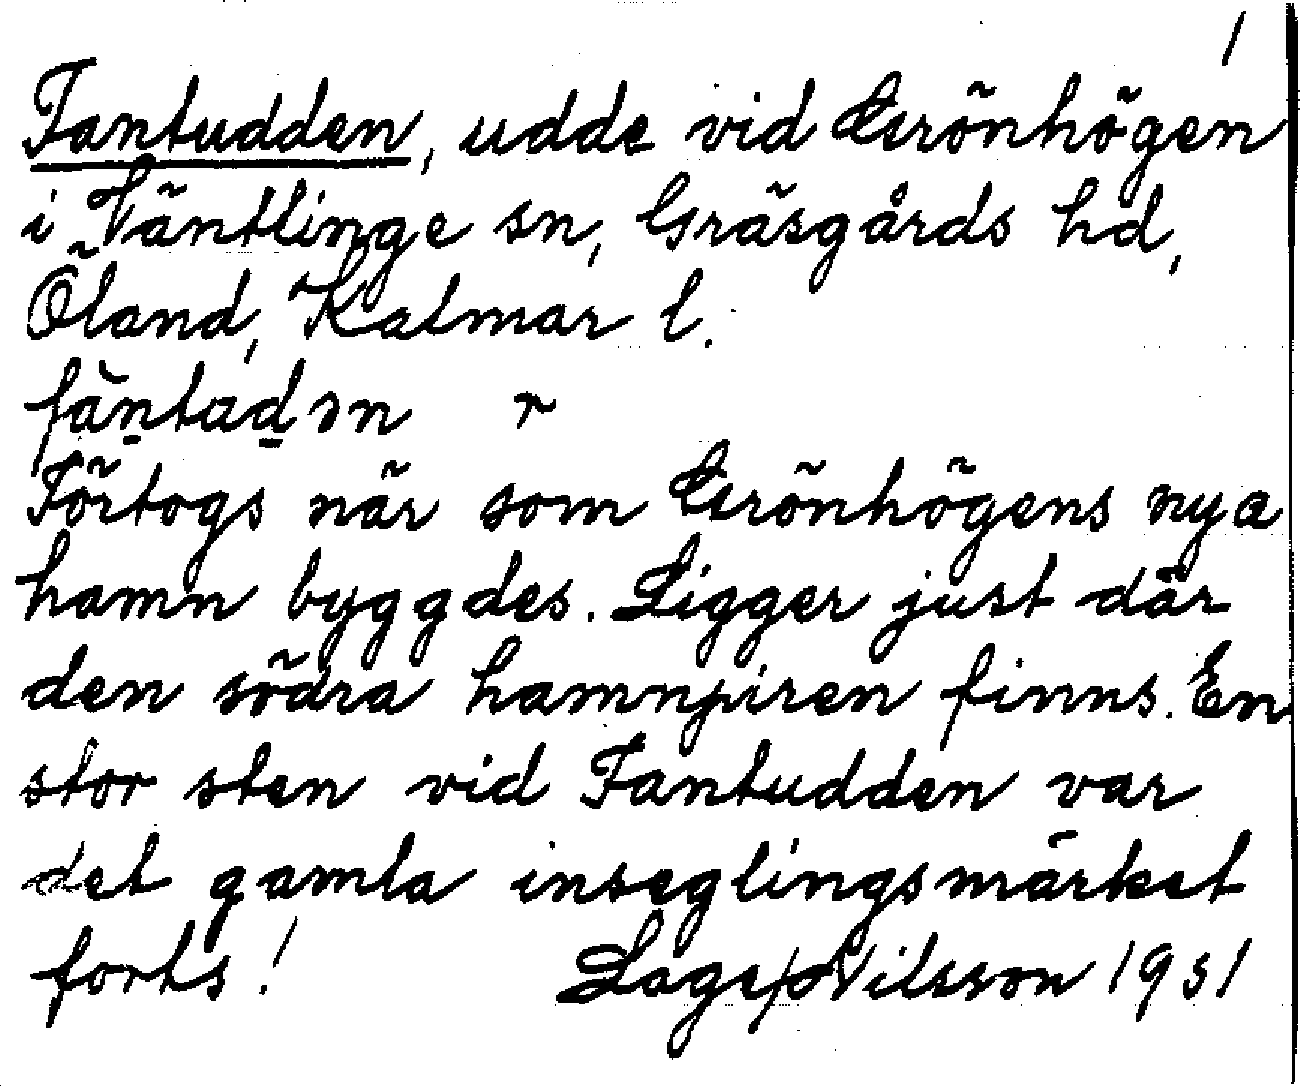 1
Fantudden, udde vid Grönhögen
i Ventlinge sn, Gräsgårds hd,
Öland, Kalmar l.
Förtogs när som Grönhögens nya
hamn byggdes. Ligger just där
den södra hamnpiren finns. En
stor sten vid Fantudden var
det gamla inseglingsmärket
forts! Nilsson 1931